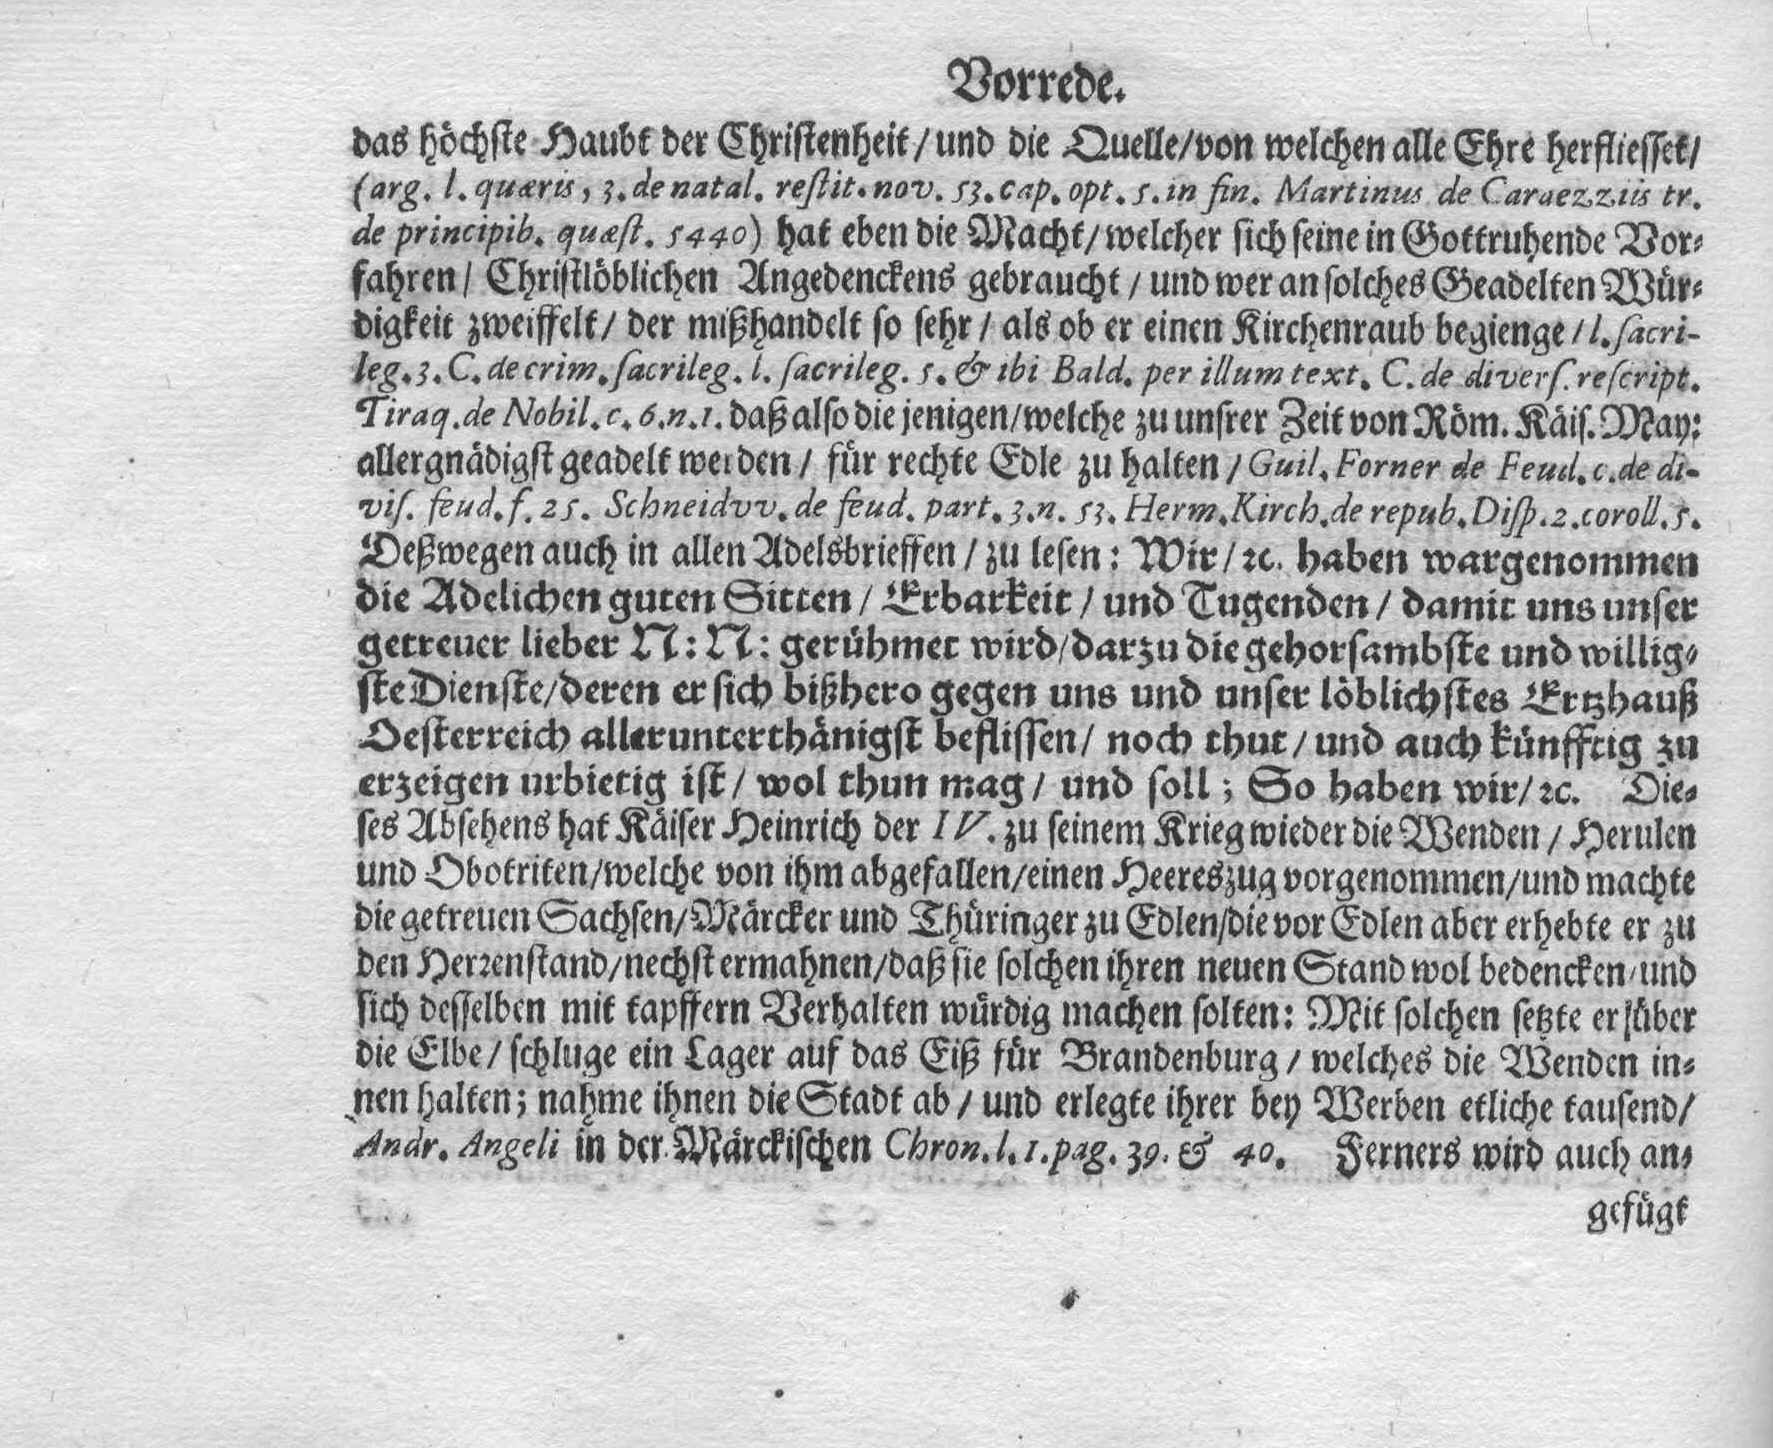 Vorrede.
das höchste Haubt der Christenheit/ und die Quelle/von welchen alle Ehre herfliesset/
(arg. l. quæris, 3. de natal. restit. nov. 53. cap. opt. 5. in fin. Martinus de Caraezziis tr.
de principib. quæst. 5440) hat eben die Macht/ welcher sich seine in Gottruhende Vor-
fahren/ Christlöblichen Angedenckens gebraucht/ und wer an solches Geadelten Wür-
digkeit zweiffelt/ der mißhandelt so sehr/ als ob er einen Kirchenraub begienge/ l. sacri-
leg. 3. C. de crim. sacrileg. l. sacrileg. 5. & ibi Bald. per illum text. C. de divers. rescript.
Tiraq. de Nobil. c. 6. n. 1. daß also die jenigen/welche zu unsrer Zeit von Röm. Käis. May:
allergnädigst geadelt werden/ für rechte Edle zu halten/ Guil. Forner de Feud. c. de di-
vis. feud. f. 25. Schneidvv. de feud. part. 3. n. 53. Herm. Kirch. de repub. Disp. 2. coroll. 5.
Deßwegen auch in allen Adelsbrieffen/ zu lesen: Wir/ ꝛc. haben wargenommen
die Adelichen guten Sitten/ Erbarkeit/ und Tugenden/ damit uns unser
getreuer lieber N: N: gerühmet wird/ darzu die gehorsambste und willig-
ste Dienste/deren er sich bißhero gegen uns und unser löblichstes Ertzhauß
Oesterreich allerunterthänigst beflissen/ noch thut/ und auch künfftig zu
erzeigen urbietig ist/ wol thun mag/ und soll; So haben wir/ ꝛc. Die-
ses Absehens hat Käiser Heinrich der IV. zu seinem Krieg wieder die Wenden/ Herulen
und Obotriten/welche von ihm abgefallen/einen Heereszug vorgenommen/und machte
die getreuen Sachsen/Märcker und Thüringer zu Edlen/die vor Edlen aber erhebte er zu
den Herꝛenstand/nechst ermahnen/daß sie solchen ihren neuen Stand wol bedencken/und
sich desselben mit tapffern Verhalten würdig machen solten: Mit solchen setzte er über
die Elbe/ schluge ein Lager auf das Eiß für Brandenburg/ welches die Wenden in-
nen halten; nahme ihnen die Stadt ab/ und erlegte ihrer bey Werben etliche tausend/
Andr. Angeli in der Märckischen Chron. l. 1. pag. 39. & 40. Ferners wird auch an-
gefügt